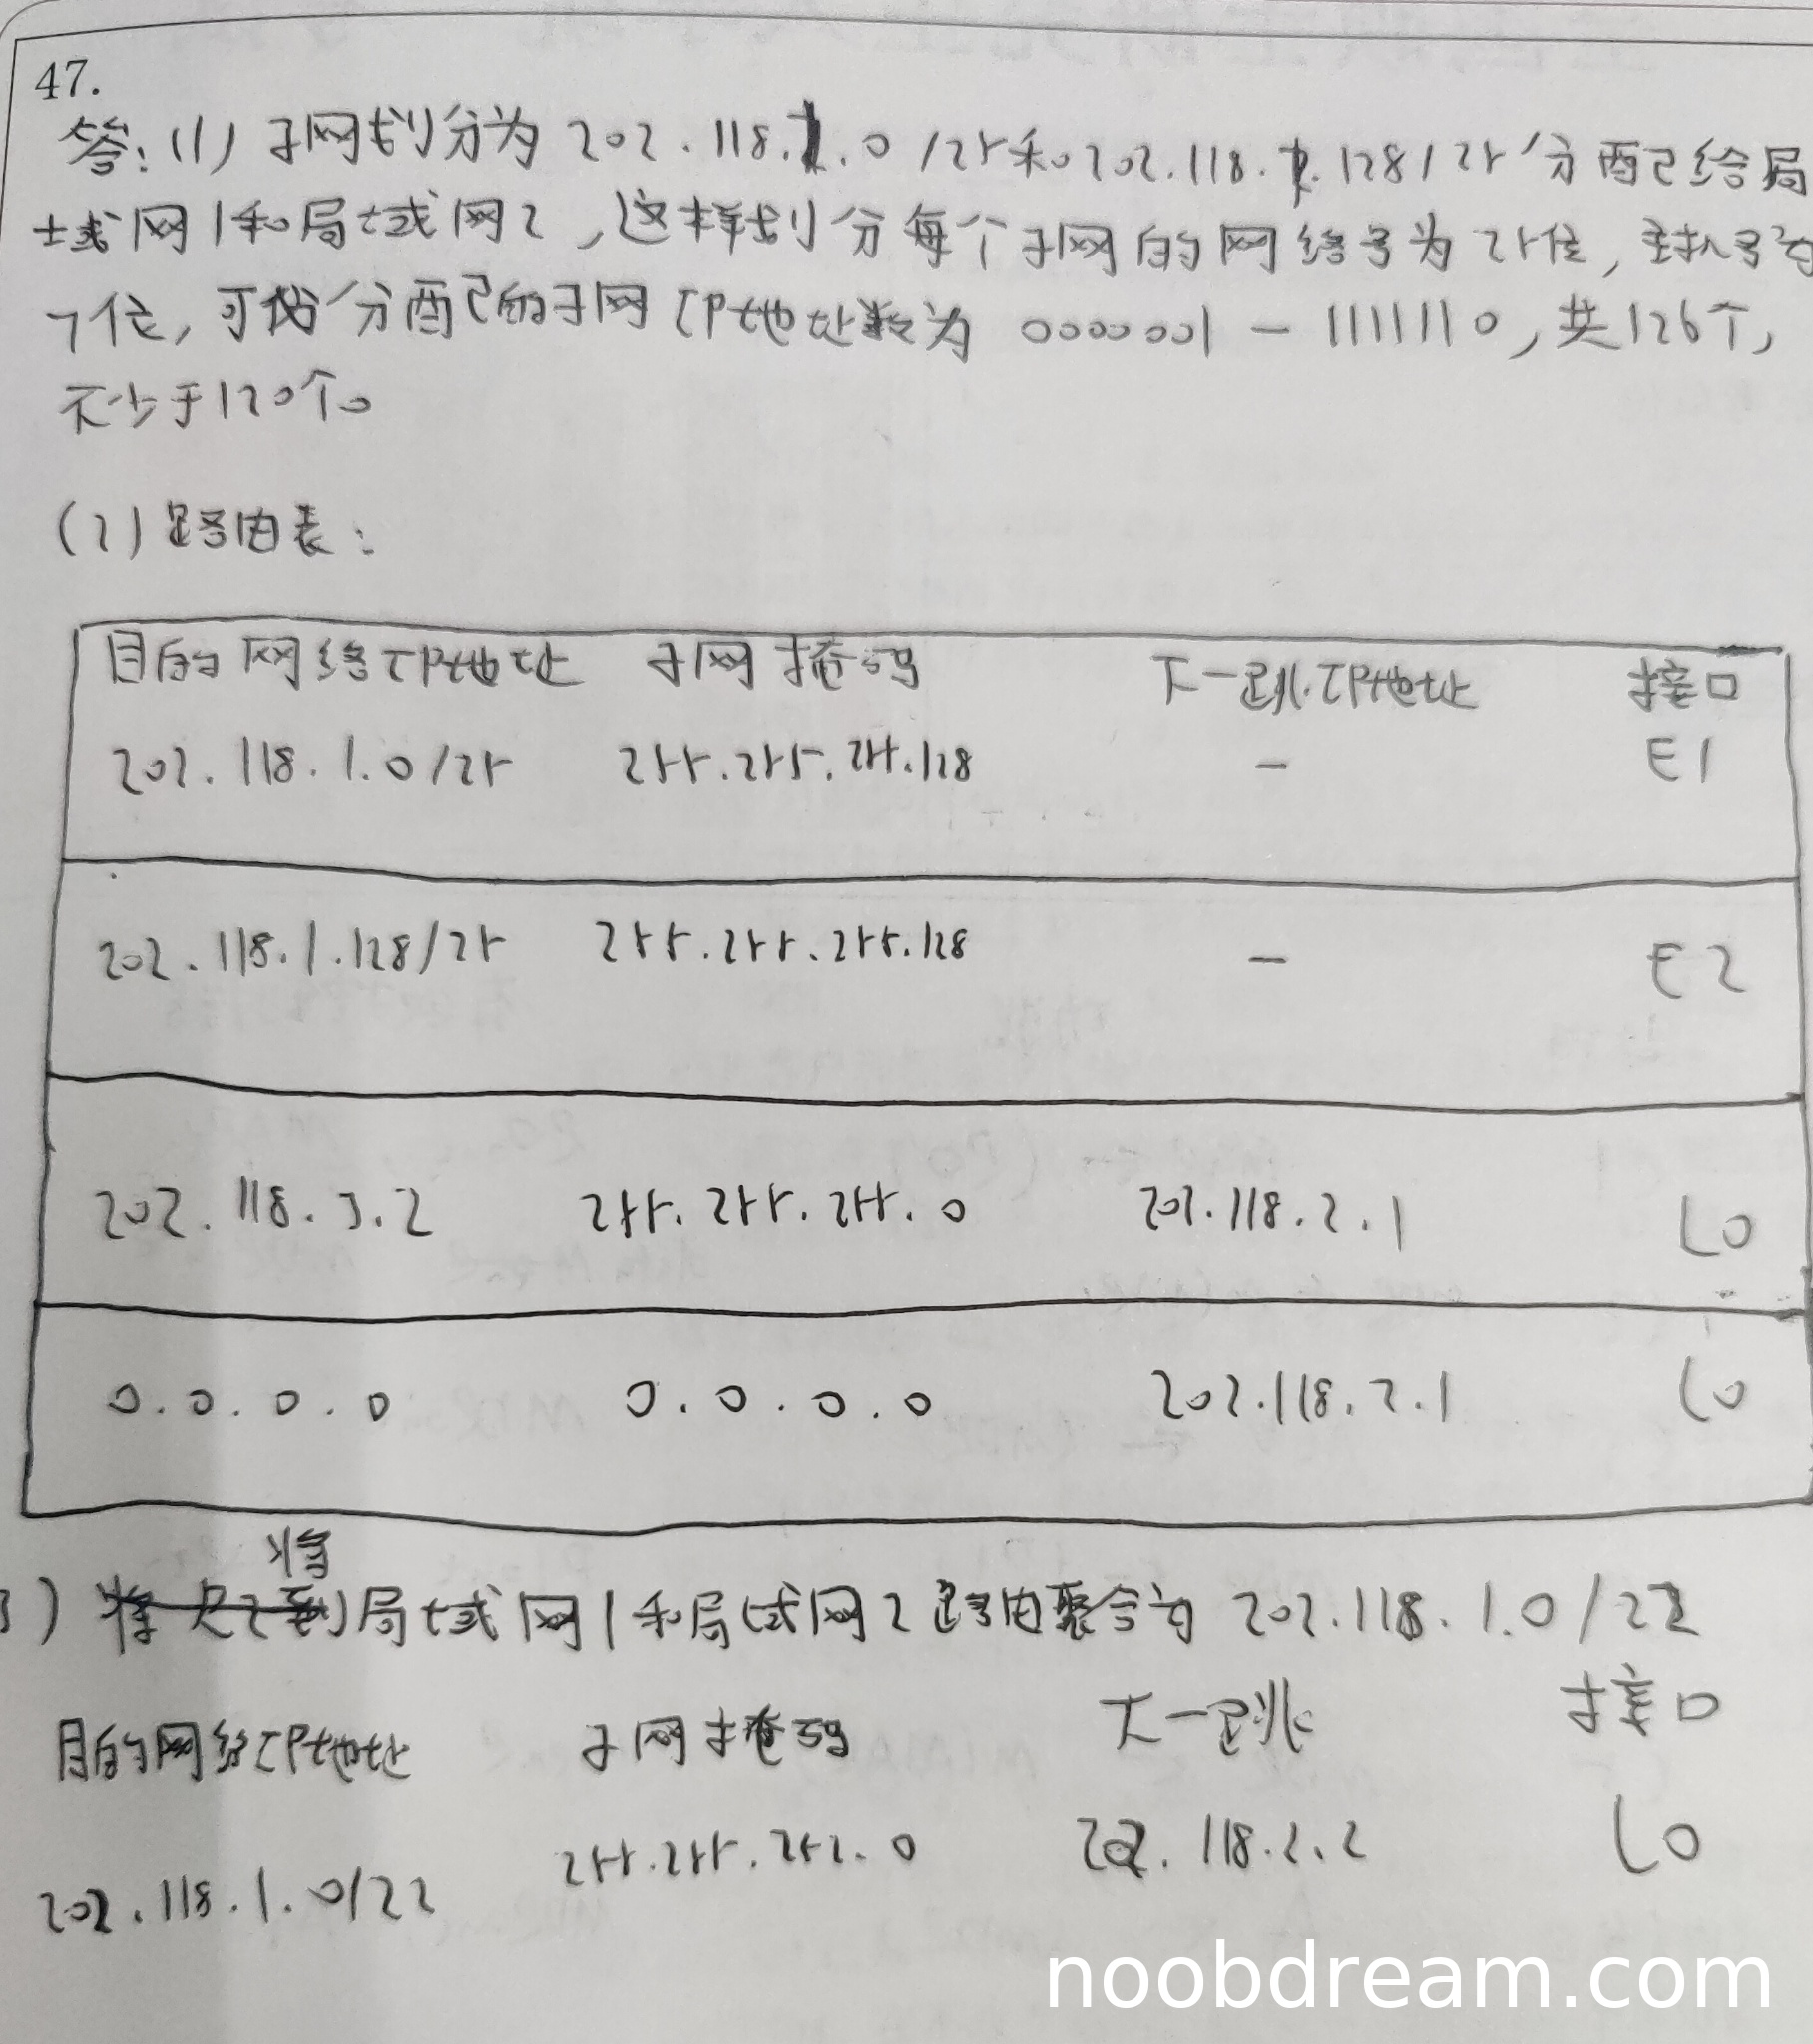 47.
答:(1)子网划分为 202.118.1.0/25和202.118.1.128/25分配给局
域网1和局域网2,这样划分每个子网的网络号为25位,主机号为
7位,可分配的子网IP地址数为 0000001 - 1111110,共126个,
不少于120个。
(2)路由表:
目的网络IP地址 子网掩码 下一跳IP地址 接口
202.118.1.0/25 255.255.255.128 - E1
202.118.1.128/25 255.255.255.128 - E2
202.118.3.2 255.255.255.0 202.118.2.1 L0
0.0.0.0 0.0.0.0 202.118.2.1 L0
将
3)局域网1和局域网2路由聚合为 202.118.1.0/22
目的网络IP地址 子网掩码 下一跳 接口
202.118.1.0/22 255.255.252.0 202.118.2.2 L0
noobdream.com